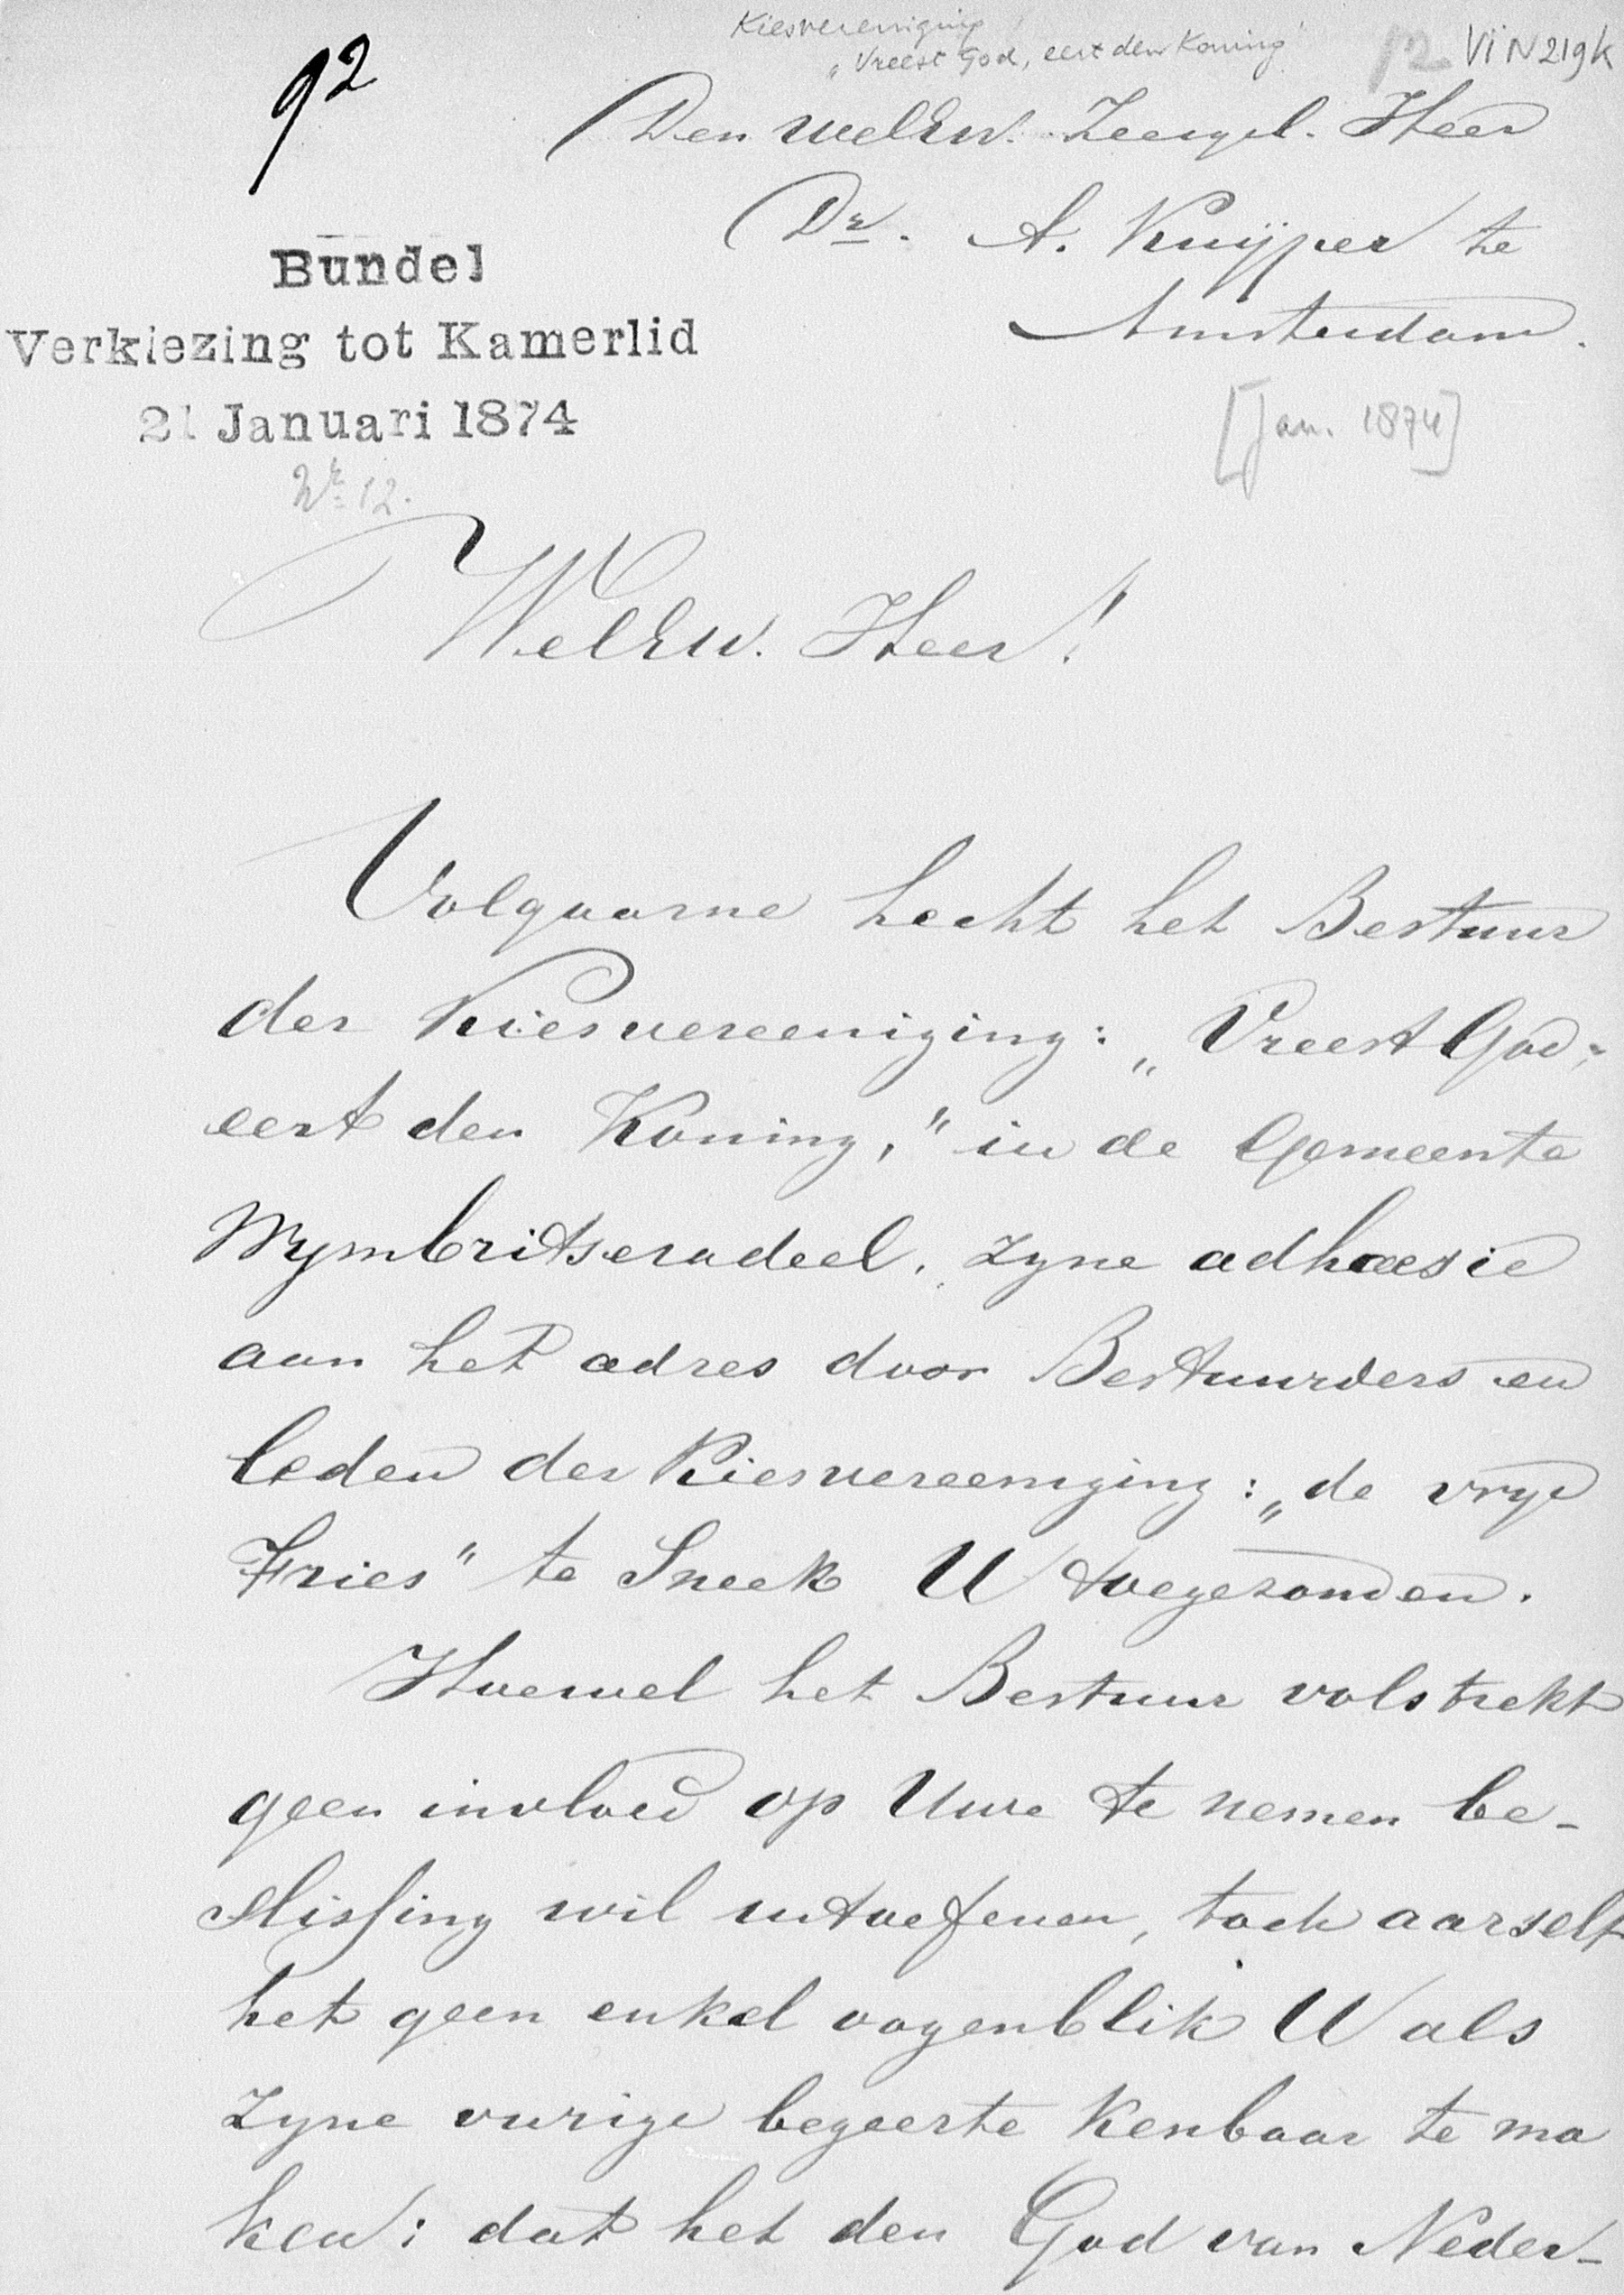 Kiesvereeniging
„Vreest God, eert den Koning"
12 VIN219k
92
Den WelEw. Zeergel. Heer
Dr. A. Kuijper te
Amsterdam.
Bundel
Verkiezing tot Kamerlid
21 Januari 1874
[Jan. 1874]
Nr 12.
WelEw. Heer!
Volgaarne hecht het Bestuur
der Kiesvereeniging: „Vreest God,
eert den Koning," in de Gemeente
Wymbritseradeel, zyne adhaesie
aan het adres door Bestuurders en
leden der Kiesvereeniging: „de vrye
Fries" te Sneek U toegezonden.
Hoewel het Bestuur volstrekt
geen invloed op Uwe te nemen be-
slissing wil uitoefenen, toch aarselt
het geen enkel oogenblik U als
zyne vurige begeerte kenbaar te ma
ken: dat het den God van Neder-